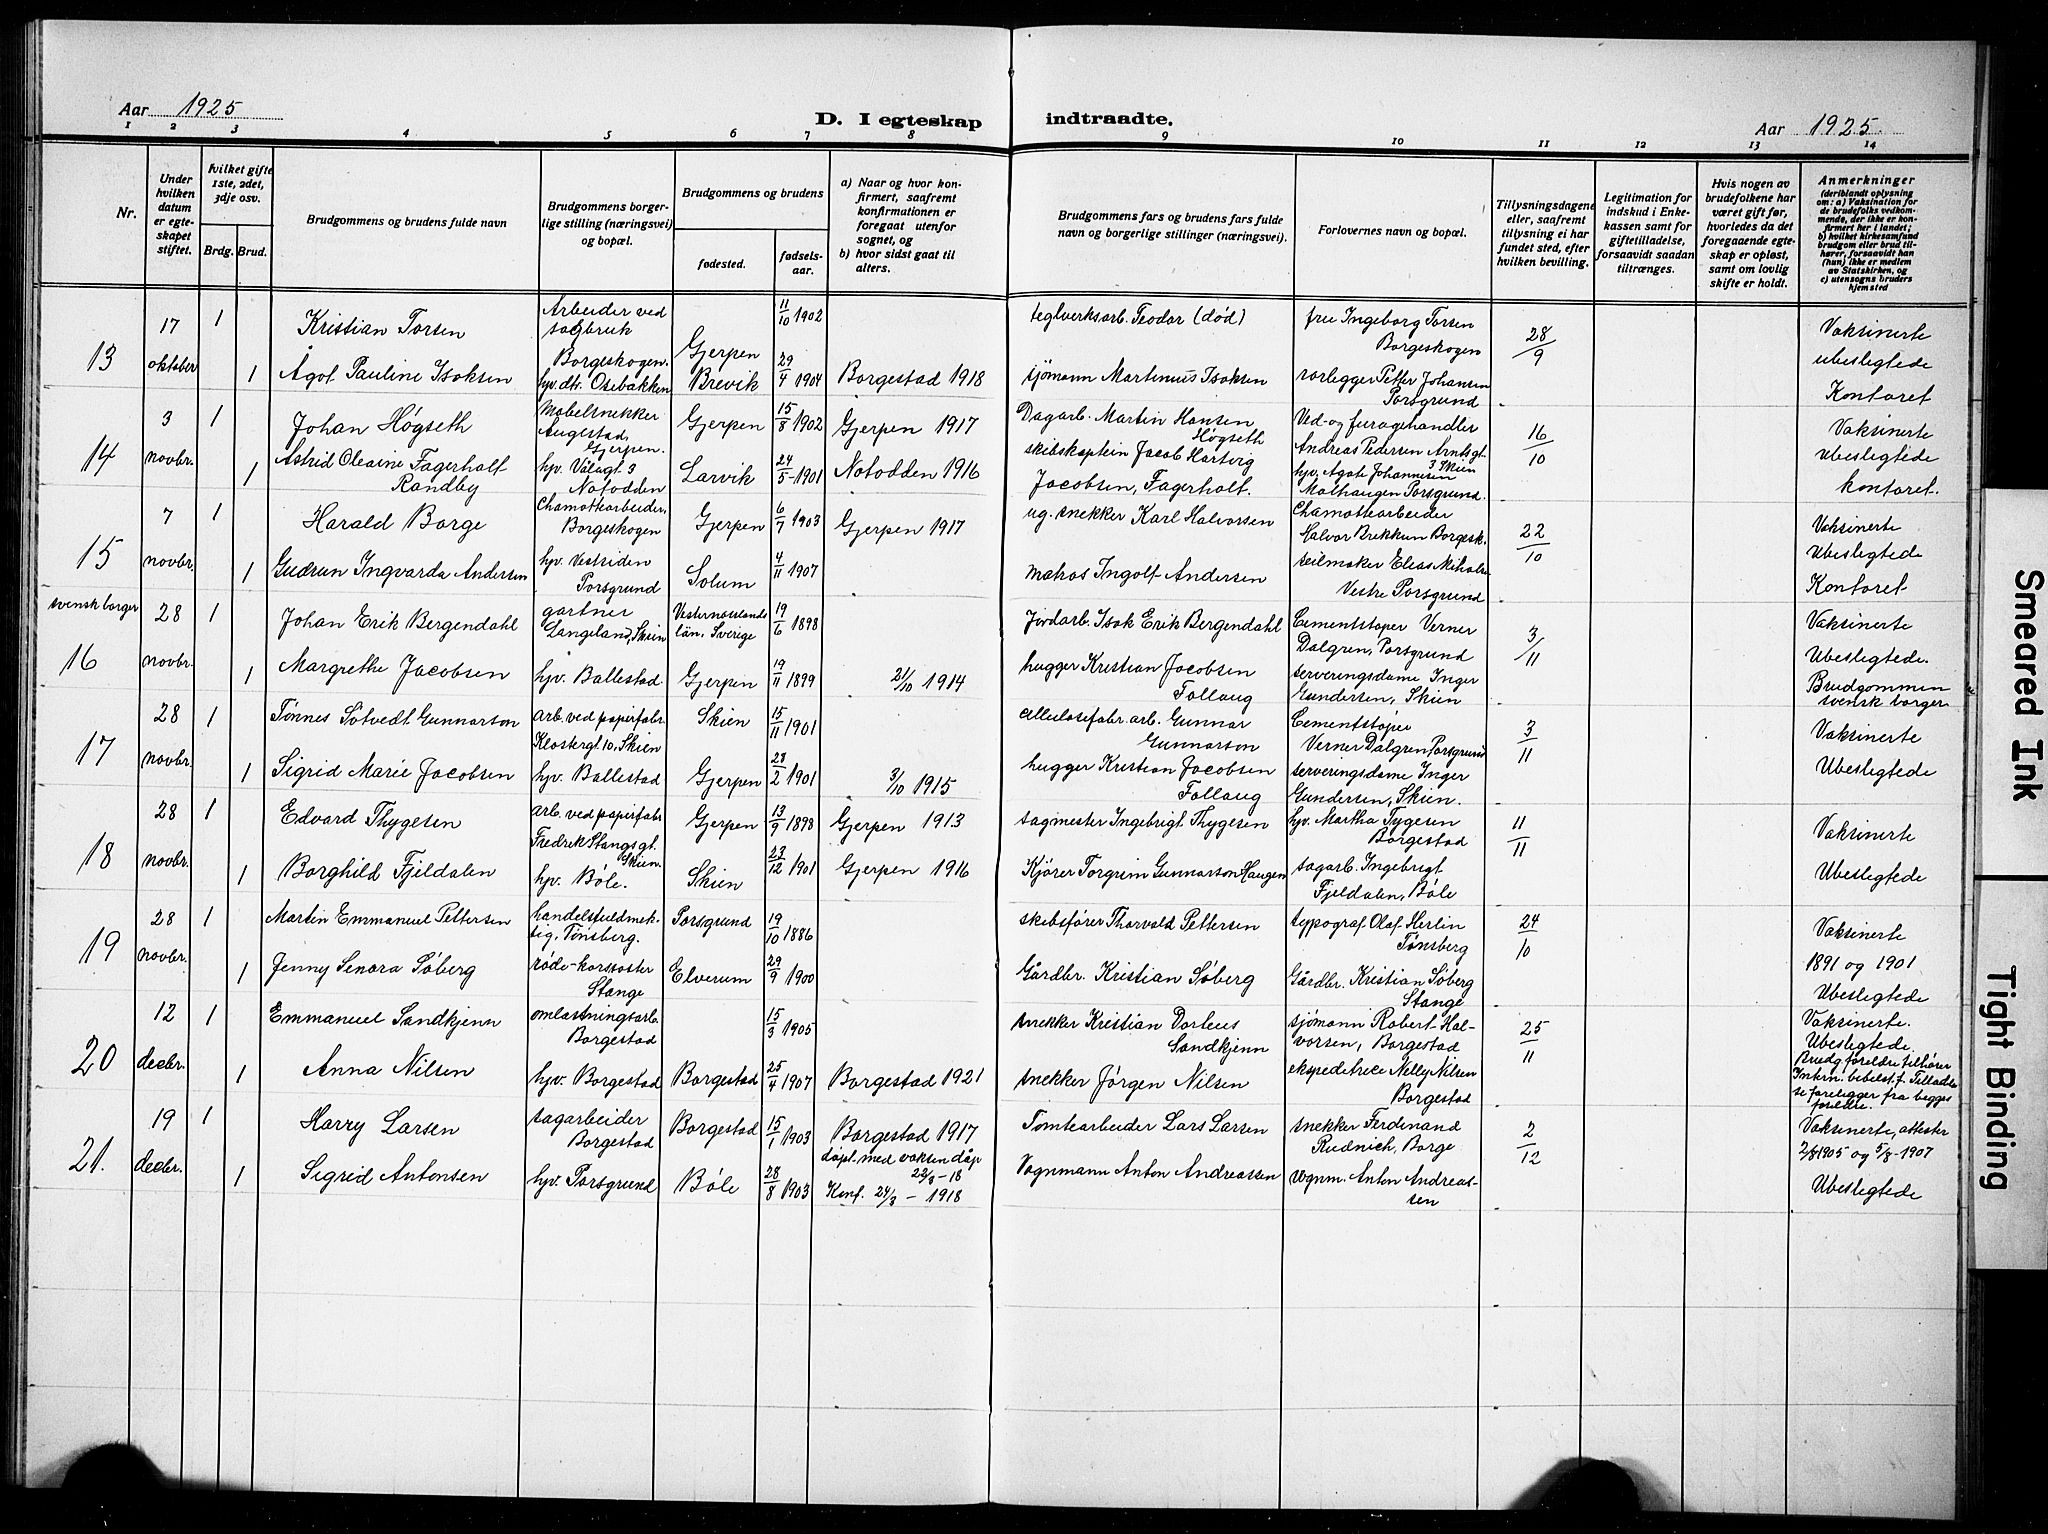 Aar 1925
D. I egteskap indtraadte.
Aar 1925.
1 2 3 4 5 6 7 8 9 10 11 12 13 14
Nr.
Under hvilken datum er egteskapet stiftet.
hvilket gifte 1ste, 2det, 3dje osv.
Brdg. Brud.
Brudgommens og brudens fulde navn
Brudgommens borgerlige stilling (næringsvei) og bopæl.
Brudgommens og brudens
fødested.
fødselsaar.
a) Naar og hvor konfirmert, saafremt konfirmationen er foregaat utenfor sognet, og
b) hvor sidst gaat til alters.
Brudgommens fars og brudens fars fulde navn og borgerlige stillinger (næringsvei).
Forlovernes navn og bopæl.
Tillysningsdagene eller, saafremt tillysning ei har fundet sted, efter hvilken bevilling.
Legitimation for indskud i Enkekassen samt for giftetilladelse, forsaavidt saadan tiltrænges.
Hvis nogen av brudefolkene har været gift før, hvorledes da det foregaaende egteskap er opløst, samt om lovlig skifte er holdt.
Anmerkninger
(deriblandt oplysning om: a) Vaksination for de brudefolks vedkommende, der ikke er konfirmert her i landet; b) hvilket kirkesamfund brudgom eller brud tilhører, forsaavidt han (hun) ikke er medlem av Statskirken, og c) utensogns bruders hjemsted
13 17 oktober
1 Kristian Torsen Arbeider ved sagbruk Borgeskogen. Gjerpen 11/10 1902 teglverksarb. Teodor (død) fru Ingeborg Torsen Borgeskogen 28/9 Vaksinerte ubeslegtede
1 Ågot Pauline Isaksen hjv. dtr. Osebakken Brevik 29/4 1904 Borgestad 1918 sjømann Martinius Isaksen rørlegger Petter Johansen Porsgrund Kontoret
14 3 novbr.
1 Johan Høgseth Møbelsnekker Augestad, Gjerpen. Gjerpen 15/8 1902 Gjerpen 1917 Dagarb. Martin Hansen Høgseth Ved- og furagehandler Andreas Pedersen Arntsgt. 3 Skien 16/10 Vaksinerte ubeslegtede
1 Astrid Oleaine Fagerholt Randby hjv. Villagt 3 Notodden Larvik 24/5-1901 Notodden 1916 skibskaptein Jacob Hartvig Jacobsen, Fagerholt. hjv. Agate Johannesen Malhaugen Porsgrund. kontoret.
15 7 novbr.
1 Harald Borge Chamottearbeider, Borgeskogen Gjerpen 6/7 1903 Gjerpen 1917 ug. snekker Karl Halvorsen Chamottearbeider Halvor Brekkun Borgesk. 22/10 Vaksinerte Ubeslegtede
1 Gudrun Ingvarda Andersen hjv. Vestsiden Porsgrund Solum 4/11 1907 matros Ingolf Andersen seilmaker Elias Vestre Porsgrund Kontoret
svensk borger
16 28 novbr.
1 Johan Erik Bergendahl gartner Langeland, Skien Vesternorrlands län, Sverige 19/6 1898 Jordarb. Isak Erik Bergendahl Cementstøper Verner Dalgren, Porsgrund 3/11 Vaksinerte Ubeslegtede.
1 Margrethe Jacobsen hjv. Ballestad Gjerpen 19/11 1899 21/10 1914 hugger Kristian Jacobsen Follaug serveringsdame Inger Gundersen, Skien Brudgommen svensk borger
17 28 novbr.
1 Tønnes Søtvedt Gunnarson arb. ved papirfabr. Klostergt. 10, Skien Skien 15/11 1901 cellulosefabr. arb. Gunnar Gunnarson Cementstøper Verner Dalgren, Porsgrund 3/11 Vaksinerte
1 Sigrid Marie Jacobsen hjv. Ballestad Gjerpen 23/2 1901 3/10 1915 hugger Kristian Jacobsen Follaug serveringsdame Inger Gundersen, Skien. Ubeslegtede
18 28 novbr.
1 Edvard Thygesen arb. ved papirfabr Fredrik Stangsgt. Skien. Gjerpen 13/9 1898 Gjerpen 1913 sagmester Ingebrigt Thygesen hjv. Martha Tygesen Borgestad 11/11 Vaksinerte
1 Borghild Fjeldalen hjv. Bøle. Skien 23/12 1901 Gjerpen 1916 Kjører Torgrim Gunnarson Haugen sagarb. Ingebrigt Fjeldalen, Bøle Ubeslegtede
19 28 novbr.
1 Martin Emmanuel Pettersen handelsfuldmektig, Tønsberg. Porsgrund 19/10 1886 skibsfører Thorvald Pettersen typograf Olaf Herlin Tønsberg 24/10 Vaksinerte 1891 og 1901
1 Jenny Senora Søberg røde-korssøster Stange Elverum 29/9 1900 Gårdbr. Kristian Søberg Gårdbr. Kristian Søberg Stange Ubeslegtede
20 12 decbr.
1 Emmanuel Sandkjenn omlastningsarb. Borgestad 15/3 1905 snekker Kristian Dorteus Sandkjenn sjømann Robert Halvorsen, Borgestad 25/11 Vaksinerte. Ubeslegtede.
1 Anna Nilsen hjv. Borgestad Borgestad 25/4 1907 Borgestad 1921 snekker Jørgen Nilsen ekspeditrice Nelly Nilsen Borgestad Brudg foreldre tilhører Intern. bibelst. f. Tilladelse foreligger fra begges foreldre.
21. 19 decbr.
1 Harry Larsen sagarbeider Borgestad Borgestad 15/1 1903 Borgestad 1917 Tomtearbeider Lars Larsen snekker Ferdinand Rudnich, Borge 2/12 Vaksinerte, attester 2/8 1905 og 5/8-1907
1 Sigrid Antonsen hjv. Porsgrund Bøle 28/8 1903 døpt med voksen dåp 22/3-18 Konf. 24/3-1918 Vognmann Anton Andreassen vognm. Anton Andreassen Ubeslegtede
Smeared Ink
Tight Binding